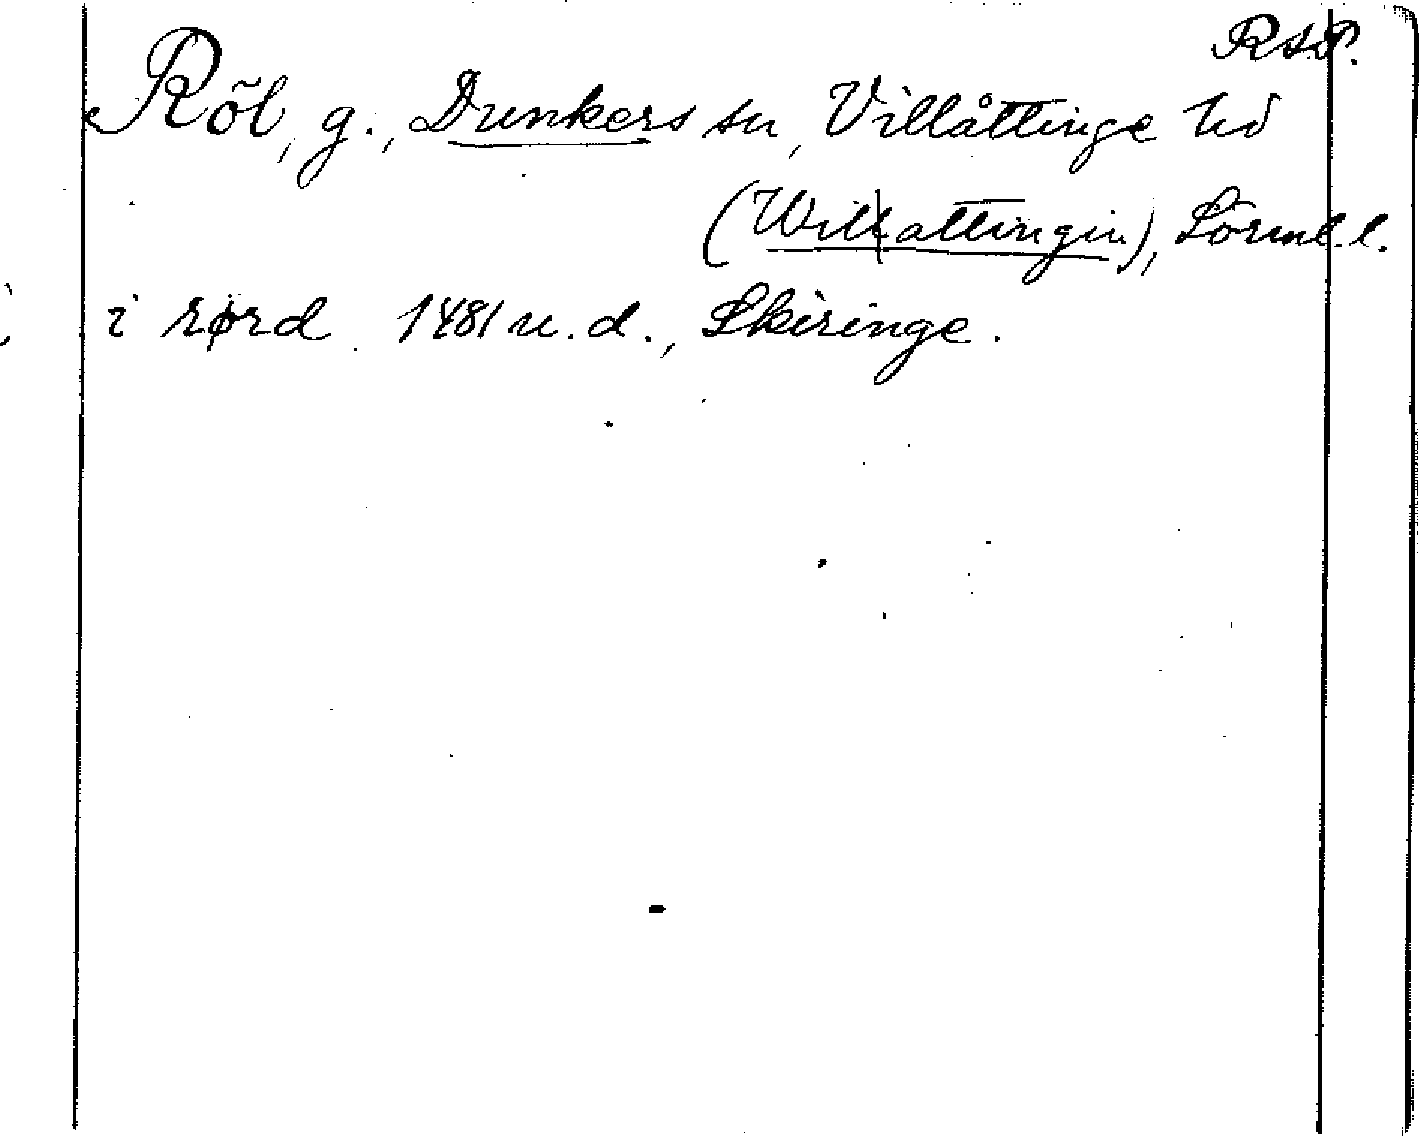 RAP.
Röl, g., Dunkers sn, Villåttinge hd
(Willattingin), Sörml. l.
i rørd 1481 u.d., Skiringe.